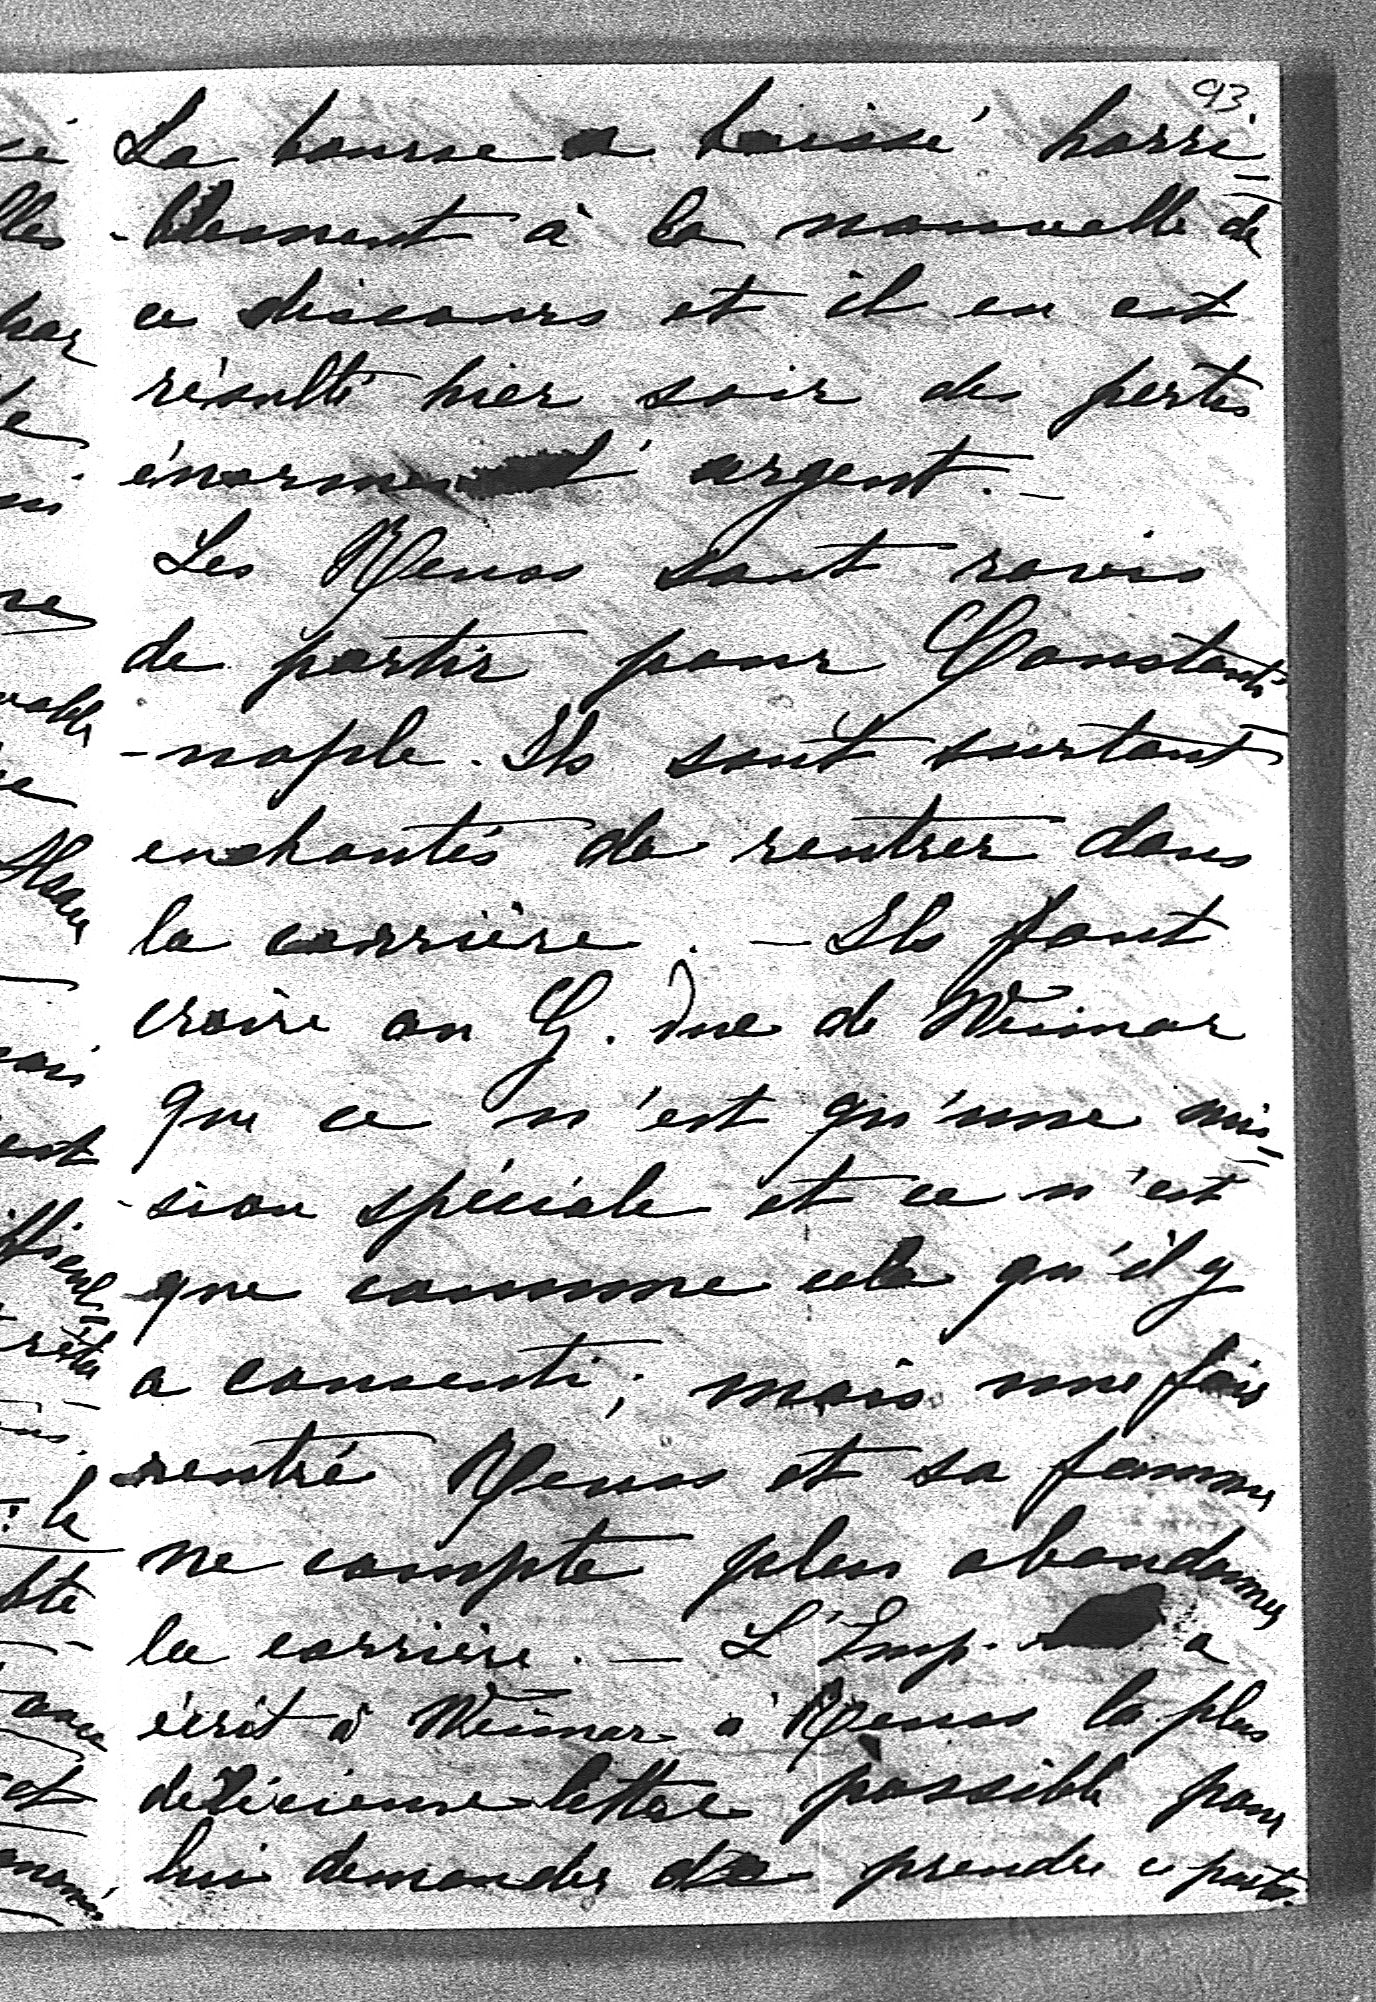 93
La bourse a baissé horri=
-blement à la nouvelle de
ce discours et il en est
résulté hier soir des pertes
énormes d'argent. —
Les Reuss sont ravis
de partir pour Constanti-
-nople. Ils sont surtout
enchantés de rentrer dans
la carrière. — Ils font
croire au G. Duc de Weimar
que ce n'est qu'une mis=
-sion spéciale et ce n'est
que comme cela qu'il y
a consenti; mais une fois
rentré Reuss et sa femme
ne compte plus abandonner
la carrière. — L'Imp. a
écrit à Weimar à Reuss la plus
délicieuse lettre possible pour
lui demander de prendre ce poste.